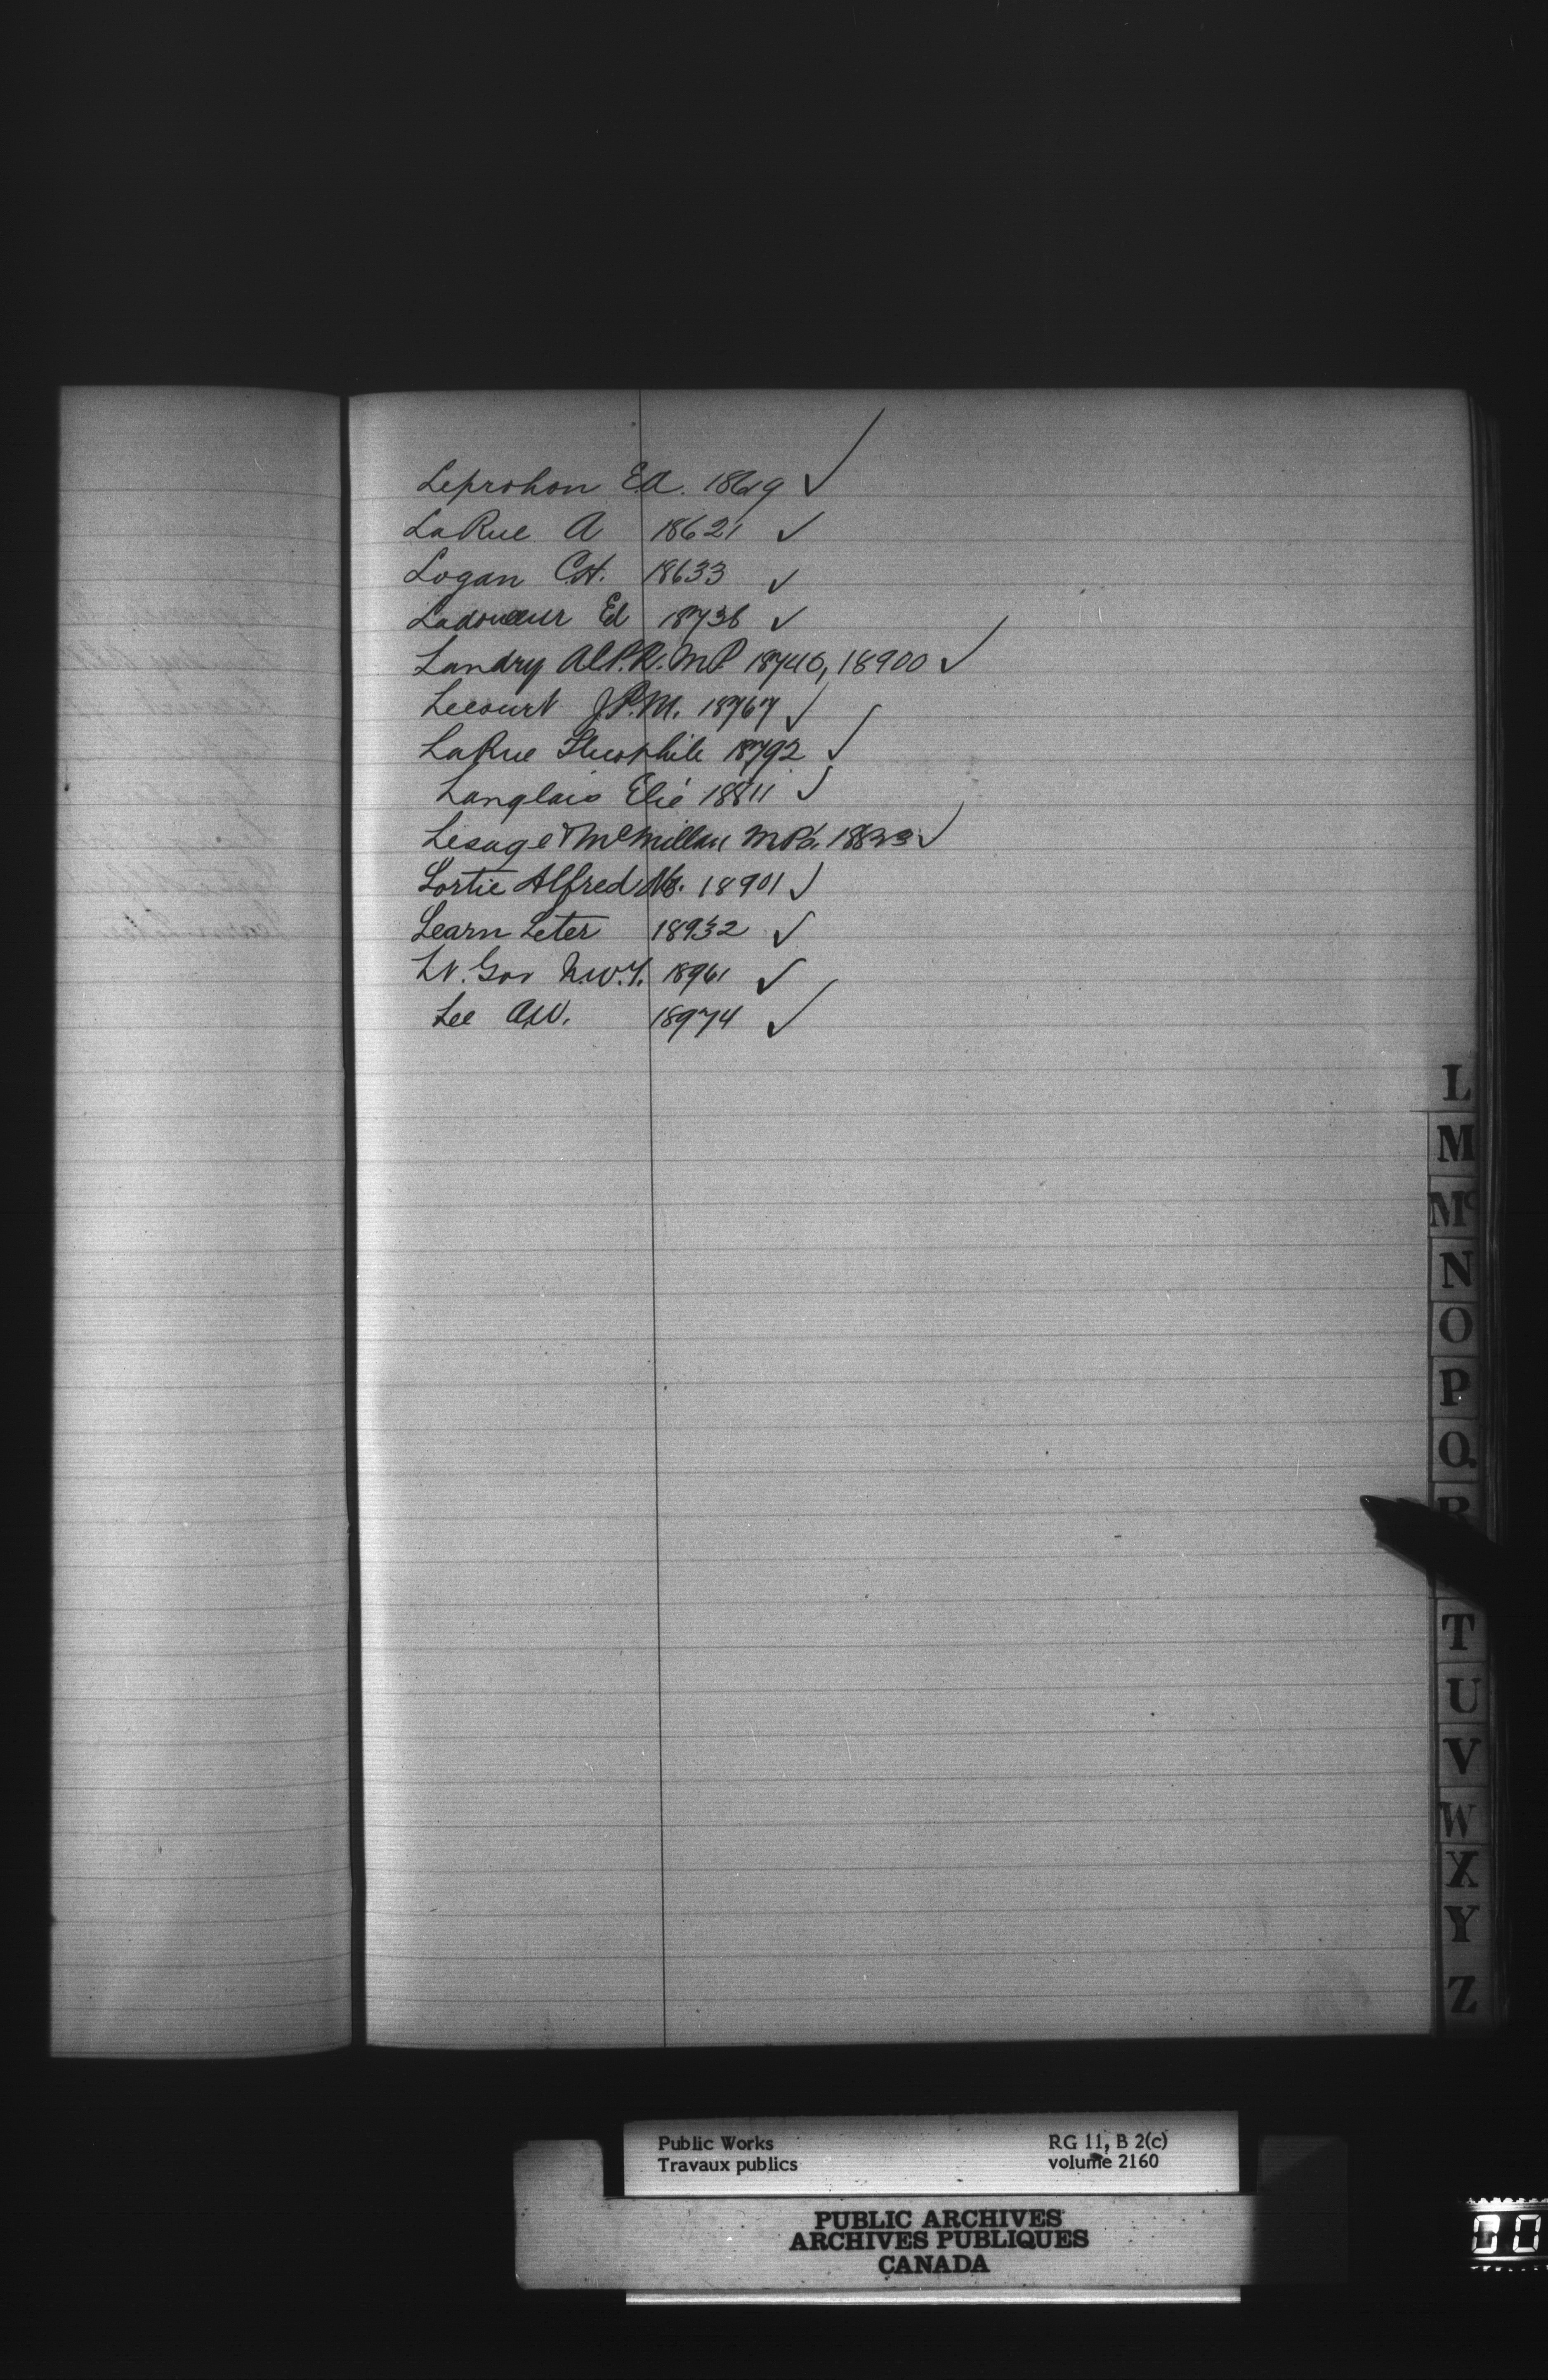 Leprohon E.A. 18619 ✓
LaRue A 18621 ✓
Logan C.H. 18633 ✓
Ladouceur Ed 18736 ✓
Landry A.C.P.R. M.P. 18740, 18900 ✓
Lecourt J.P.M. 18767 ✓
LaRue Theophile 18792 ✓
Langlais Elié 18811 ✓
Lesage & McMillan M.P's. 18833 ✓
Lortie Alfred 18901 ✓
Learn Leter 18932 ✓
Lt. Gov N.W.T. 18961 ✓
Lee A.W. 18974 ✓
L
M
Mc
N
O
P
Q
R
T
U
V
W
X
Y
Z
Public Works RG 11, B 2(c)
Travaux publics volume 2160
PUBLIC ARCHIVES
ARCHIVES PUBLIQUES
CANADA
00